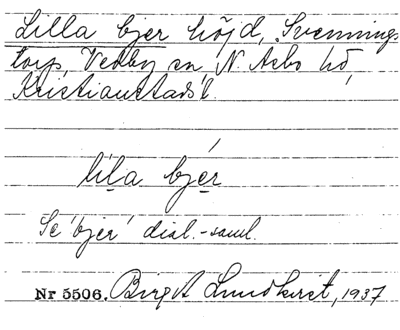 Lilla bjer höjd, Svennings-
torp, Vedby sn N. Åsbo hd,
Kristianstads l.
lila bjér
Se 'bjer' dial.-saml.
Nr 5506. Birgit Lundkvist, 1937